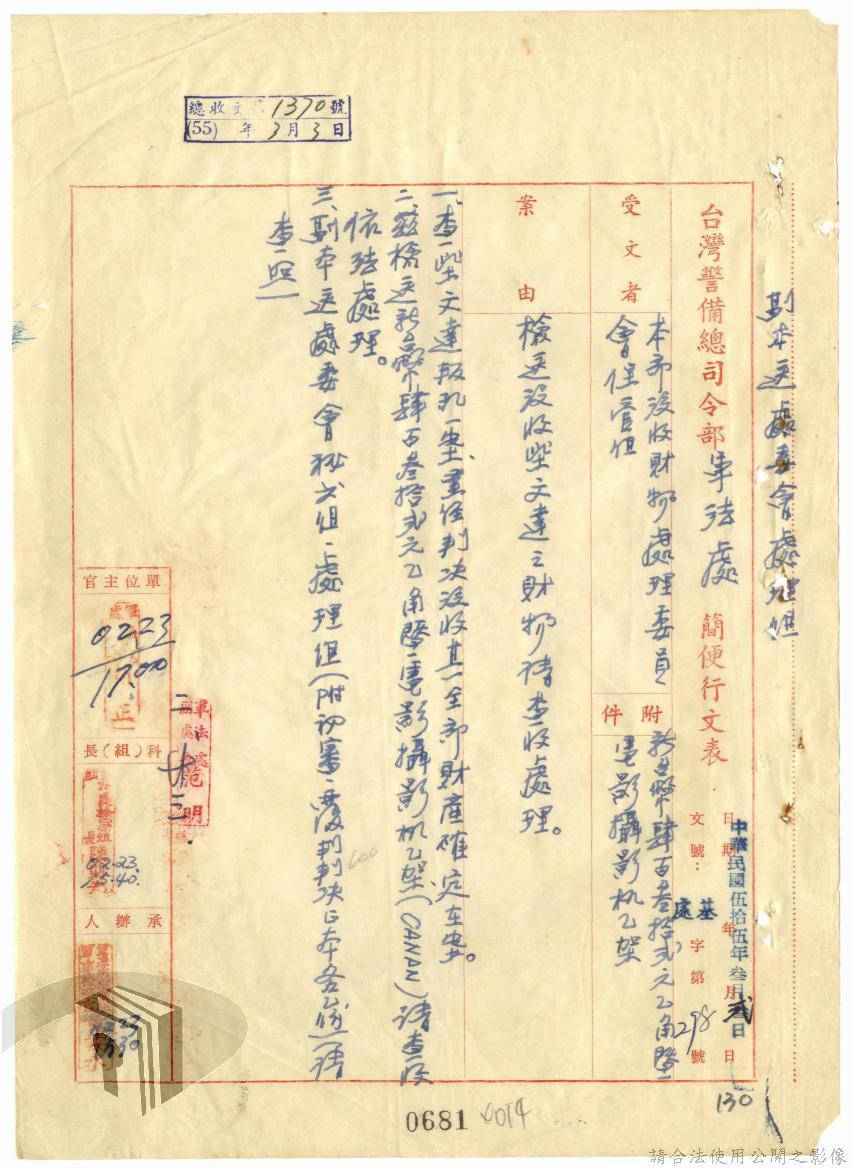 總收文號1370號
(55)年3月3日
副本送處委會處理組
台灣警備總司令部軍法處 簡便行文表
日期 年 月 日
中華民國伍拾伍年叁月貳日
文號：處基字第298號
受文者
本部沒收財物處理委員
會保管組
附件
新台幣肆百叁拾貳元乙角暨
電影攝影机乙架
案由
檢送沒收柴文達之財物請查收處理。
一、查柴文達叛乱一案、業經判決沒收其全部財産確定在案。
二、茲檢送新台幣肆百叁拾貳元乙角暨電影攝影机乙架(CANON)請查收
依法處理。
三、副本送處委會秘書組、處理組(附初審、覆判判決正本各乙份)請
查照
單位主官
0223
17.00
軍法處
范明
二廿三
科(組)長
02.23.
15.40.
承辦人
0223
130
0681
0014
請合法使用公開之影像